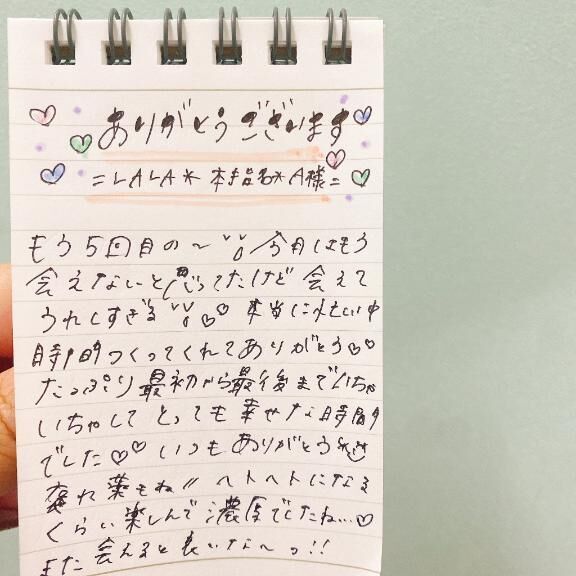 ありがとうございます
=LALA* 本指名* A様=
もう5回目の〜 今月はもう
会えないと思ってたけど 会えて
うれしすぎる♡♡ 本当に忙しい中
時間つくってくれてありがとう♡♡
たっぷり最初から最後までいちゃ
いちゃして とっても幸せな時間
でした♡♡ いつもありがとう
薬もね〃 ヘトヘトになる
くらい楽しんで 濃厚でしたね…♡
また 会えると良いな〜っ!!